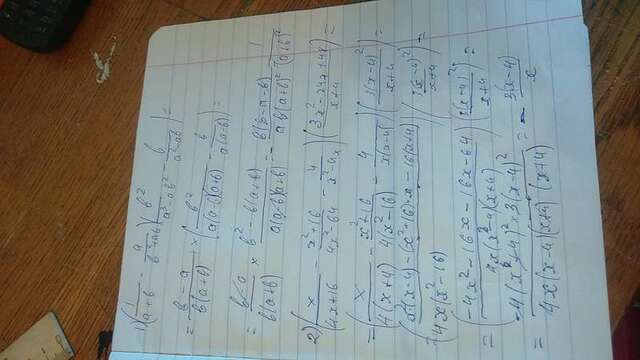 1) (1/(a+b) - a/(b²+ab)) (b²/(a³-ab²) - b/(a²-ab)) =
= (b-a)/(b(a+b)) × (b²/(a(a-b)(a+b)) - b/(a(a-b))) =
= (b-a)/(b(a+b)) × (b²-b(a+b))/(a(a-b)(a+b)) = - b(b-a-b)/(ab(a+b)²) = 1/(a+b)²
2) (x/(4x+16) - (x²+16)/(4x²-64) - 4/(x²-4x)) ((3x²-24x+48)/(x+4)) =
= (x/(4(x+4)) - (x²+16)/(4(x²-16)) - 4/(x(x-4))) (3(x-4)²/(x+4)) =
= ((x²(x-4)-(x²+16)·x-16(x+4))/(4x(x²-16))) (3(x-4)²/(x+4)) =
= ((-4x²-16x-16x-64)/(4x(x-4)(x+4))) (3(x-4)²/(x+4)) =
= (-4(x+4)²×3(x-4)²)/(4x(x-4)(x+4)(x+4)) = - 3(x-4)/x